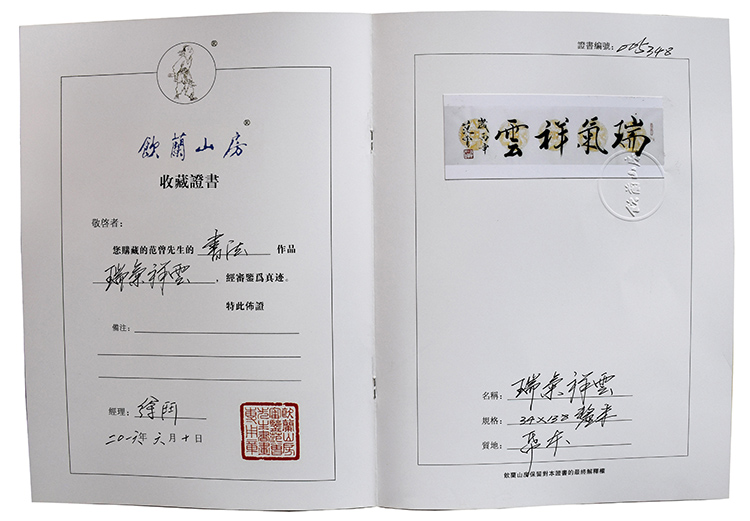 ®
飲蘭山房®
收藏證書
敬啓者:
您購藏的范曾先生的 書法 作品
瑞氣祥雲,經審鑒爲真迹。
特此佈證
備注:
經理:
二〇一六年六月十日
證書編號:005348
瑞氣祥雲
飲蘭山房
名稱:瑞氣祥雲
規格:34×138 釐米
質地:
飲蘭山房保留對本證書的最終解釋權